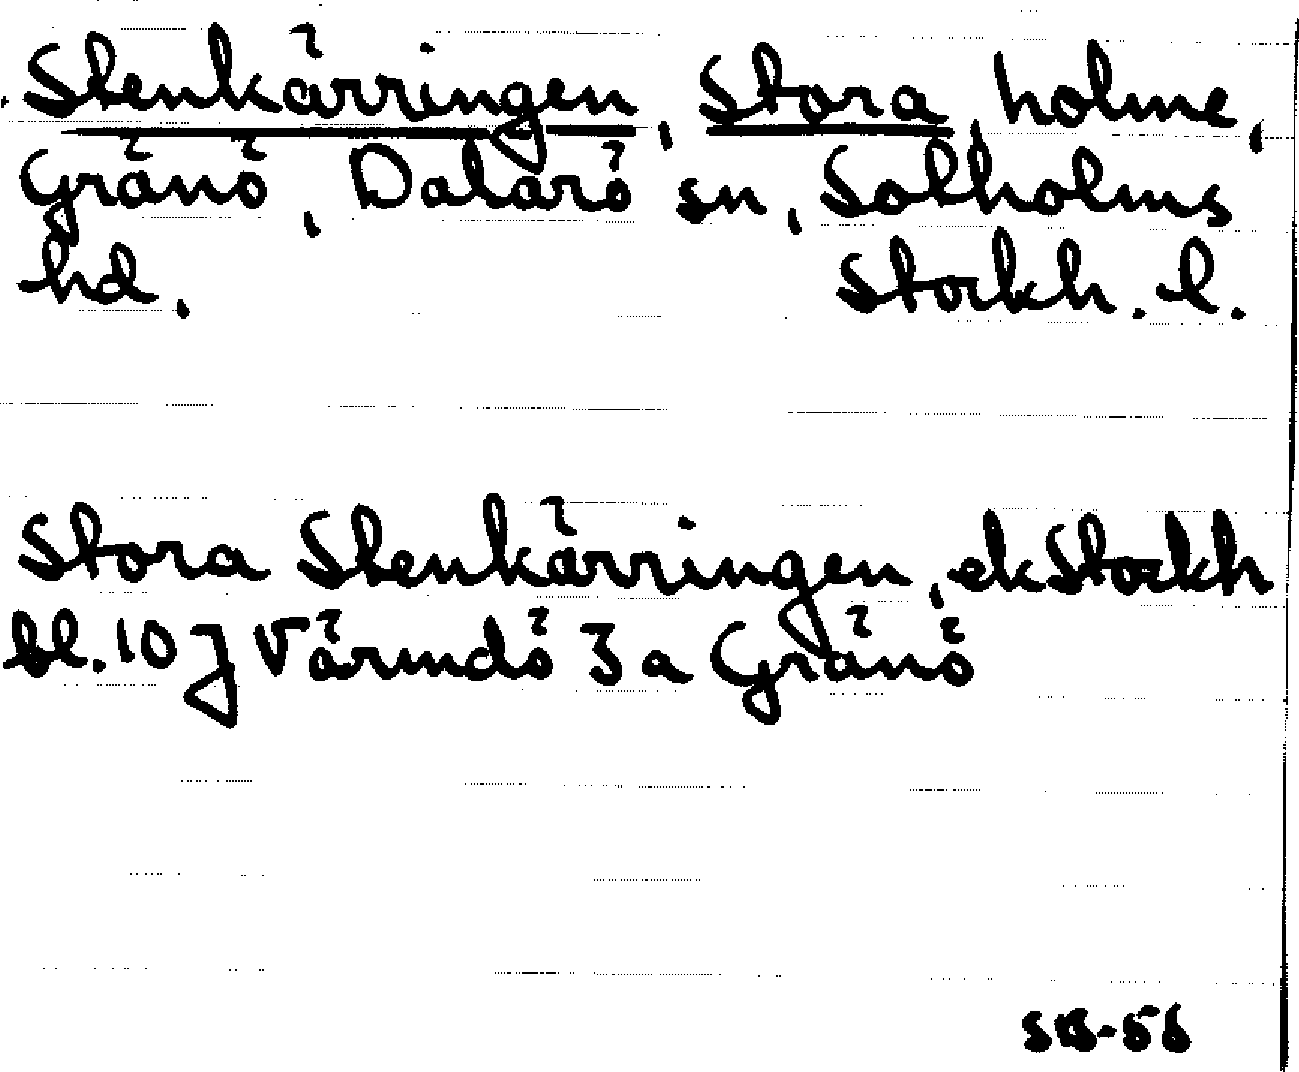 Stenkärringen, Stora, holme,
Gränö, Dalarö sn, Sotholms
hd. Stockh. l.
Stora Stenkärringen, ek Stockh
bl. 10 J Värmdö 3 a Gränö
SB-56